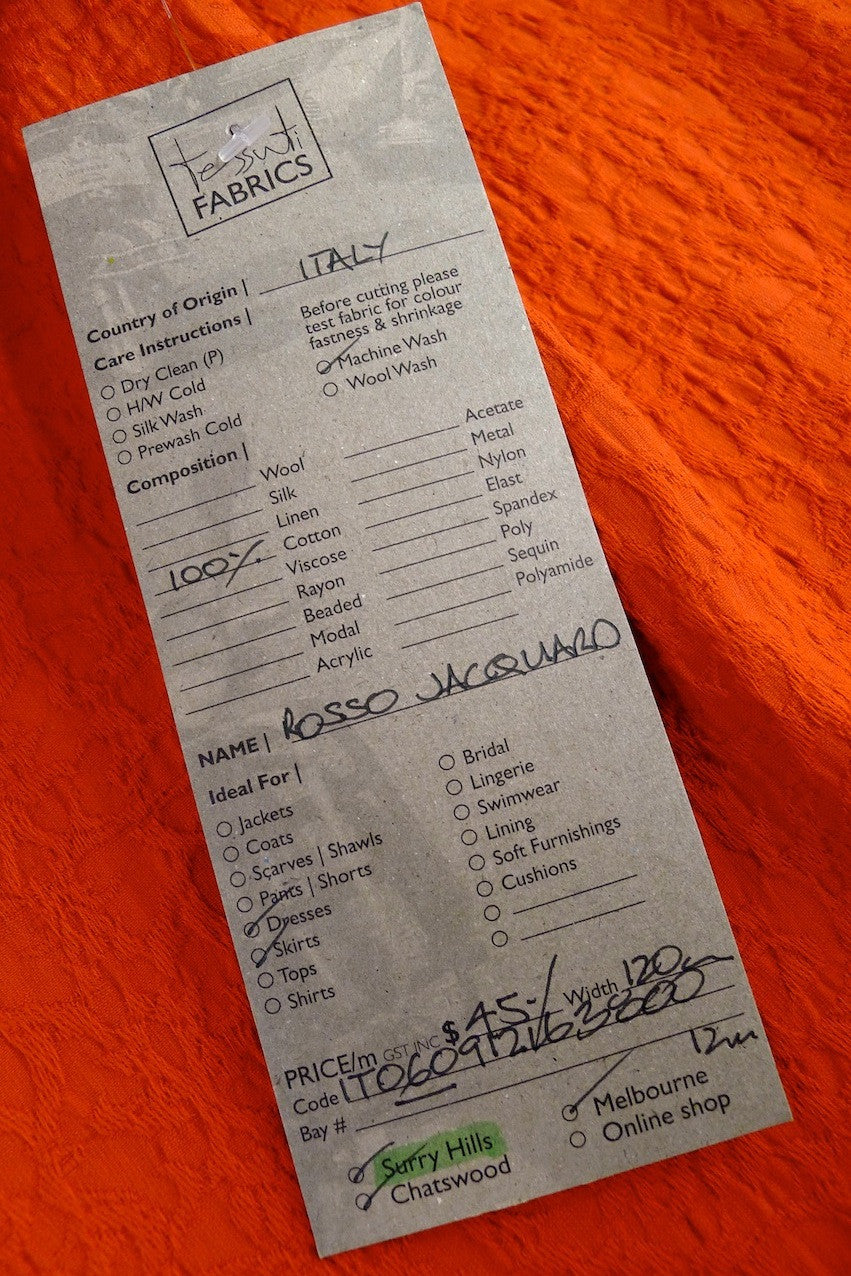 tessuti
FABRICS
Country of Origin | ITALY
Care Instructions |
Before cutting please
test fabric for colour
fastness & shrinkage
Dry Clean (P)
H/W Cold
Silk Wash
Prewash Cold
Machine Wash
Wool Wash
Composition |
Wool
Silk
Linen
100% Cotton
Viscose
Rayon
Beaded
Modal
Acrylic
Acetate
Metal
Nylon
Elast
Spandex
Poly
Sequin
Polyamide
NAME | ROSSO JACQUARD
Ideal For |
Jackets
Coats
Scarves | Shawls
Pants | Shorts
Dresses
Skirts
Tops
Shirts
Bridal
Lingerie
Swimwear
Lining
Soft Furnishings
Cushions
PRICE/m GST INC $ 45-/ Width 120cm
Code
Bay # 12m
Surry Hills
Chatswood
Melbourne
Online shop